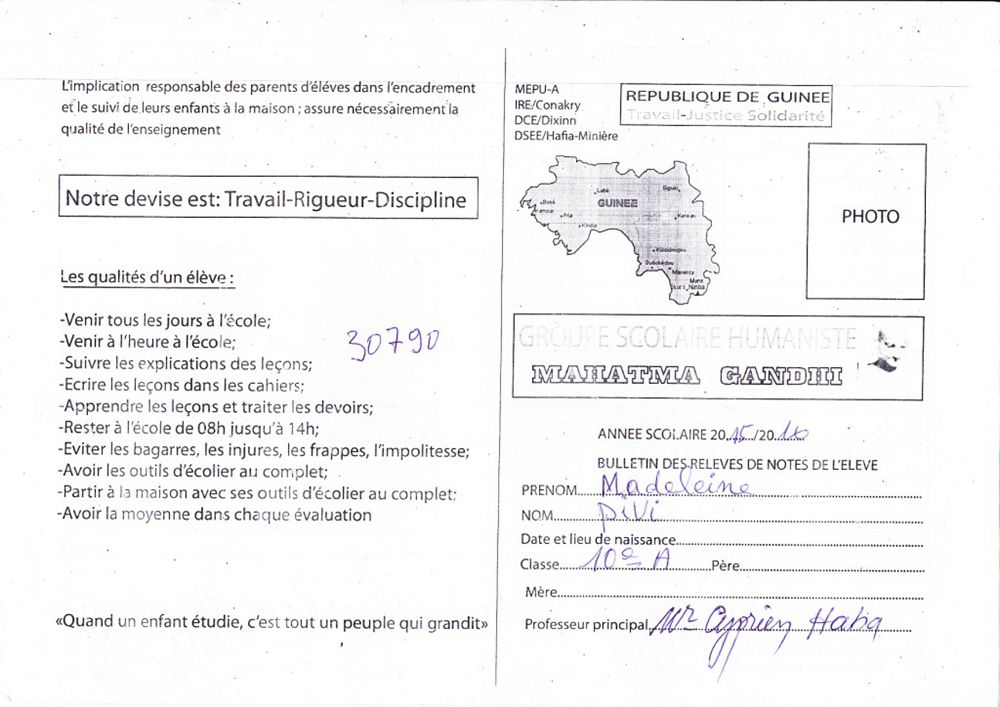 L'implication responsable des parents d'éléves dans l'encadrement
et le suivi de leurs enfants à la maison ; assure nécessairement la
qualité de l'enseignement
Notre devise est: Travail-Rigueur-Discipline
Les qualités d'un élève :
-Venir tous les jours à l'école;
-Venir à l'heure à l'école;
-Suivre les explications des leçons;
-Ecrire les leçons dans les cahiers;
-Apprendre les leçons et traiter les devoirs;
-Rester à l'école de 08h jusqu'à 14h;
-Eviter les bagarres, les injures, les frappes, l'impolitesse;
-Avoir les outils d'écolier au complet;
-Partir à la maison avec ses outils d'écolier au complet;
-Avoir la moyenne dans chaque évaluation
30790
«Quand un enfant étudie, c'est tout un peuple qui grandit»
MEPU-A
IRE/Conakry
DCE/Dixinn
DSEE/Hafia-Minière
REPUBLIQUE DE GUINEE
Travail-Justice Solidarité
Labé
Siguiri
Boké
GUINEE
Kamsar
Fria
Kankan
Kindia
Kissidougou
Guéckédou
Macenta
Mont
Nimba
PHOTO
GROUPE SCOLAIRE HUMANISTE
MAHATMA GANDHI
ANNEE SCOLAIRE 2015/2016
BULLETIN DES RELEVES DE NOTES DE L'ELEVE
PRENOM Madeleine
NOM PiVi
Date et lieu de naissance
Classe 10e A Père
Mère
Professeur principal Mr Cyprien Haba